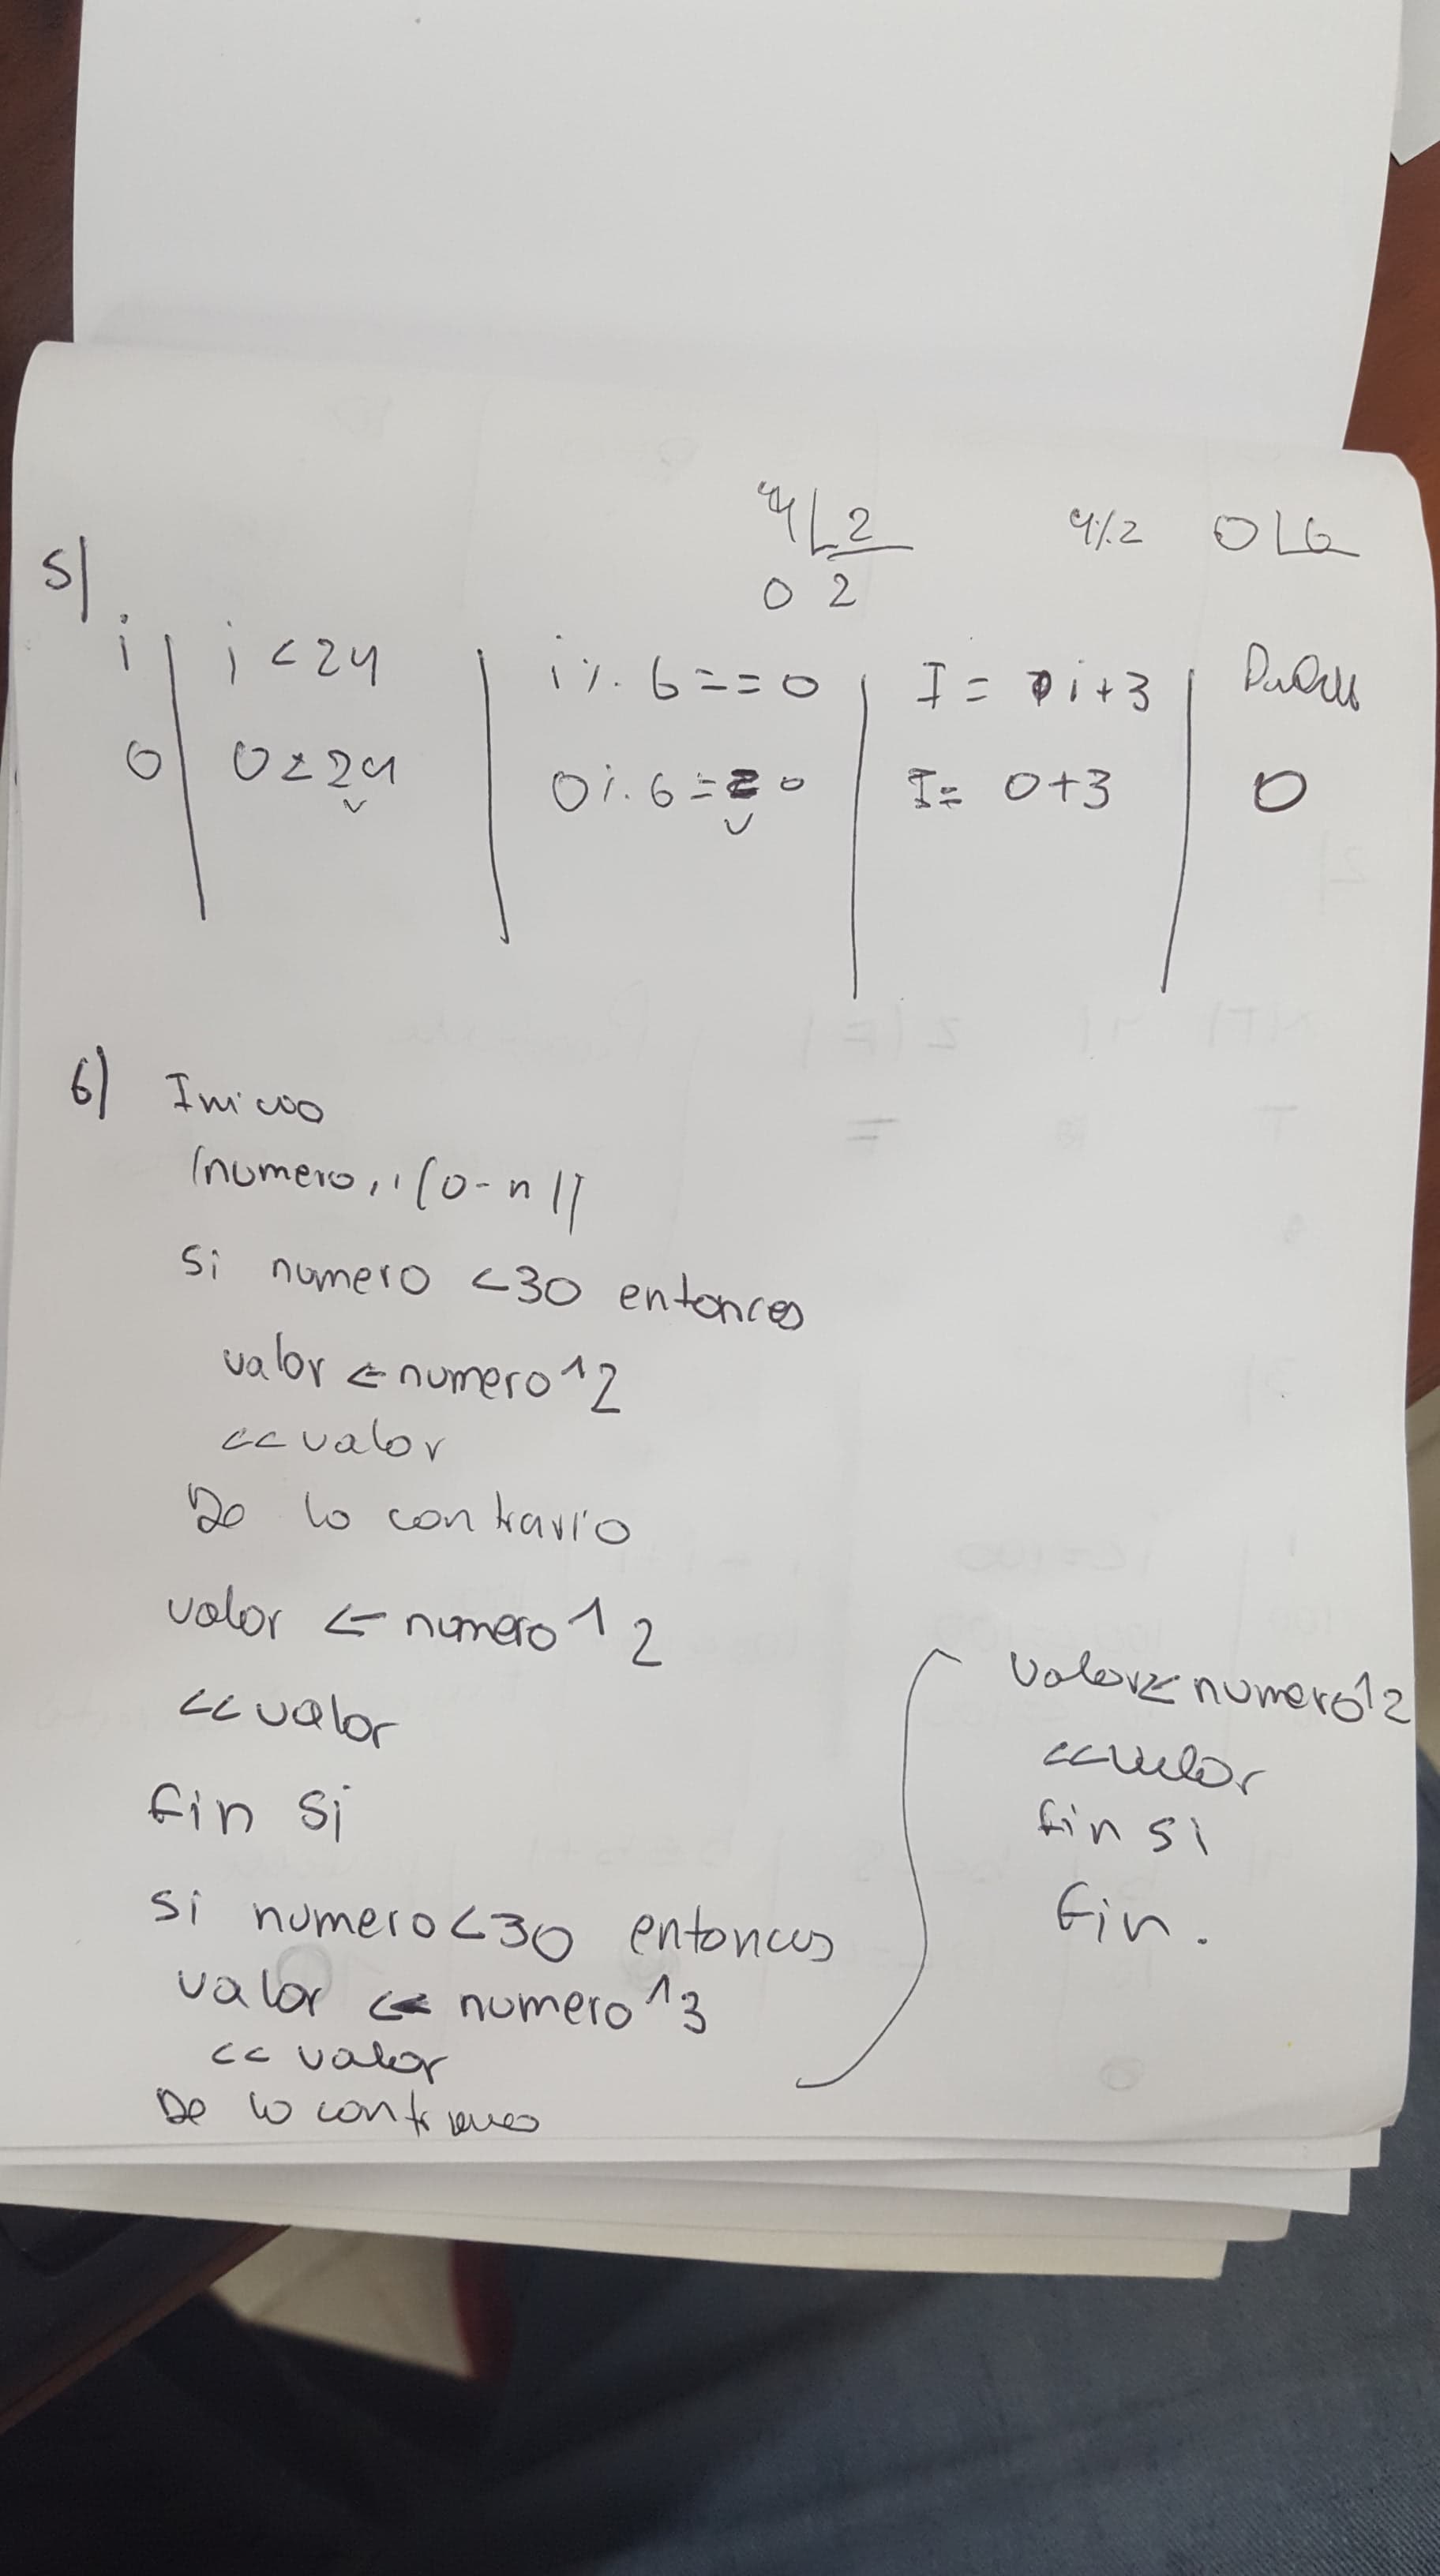 4 L 2 4%2 0 L 6
0 2
5)
i | i < 24 | i % 6 == 0 | I = i + 3 |
0 | 0 < 24 v | 0 % 6 == 0 v | I = 0 + 3 | 0
6) Inicio
(numero, i (0 - n))
Si numero < 30 entonces
valor <- numero ^ 2
<< valor
De lo contrario
valor <- numero ^ 2
<< valor
fin si
si numero < 30 entonces
valor <- numero ^ 3
<< valor
De lo contrario
valor <- numero ^ 2
<< valor
fin si
fin.